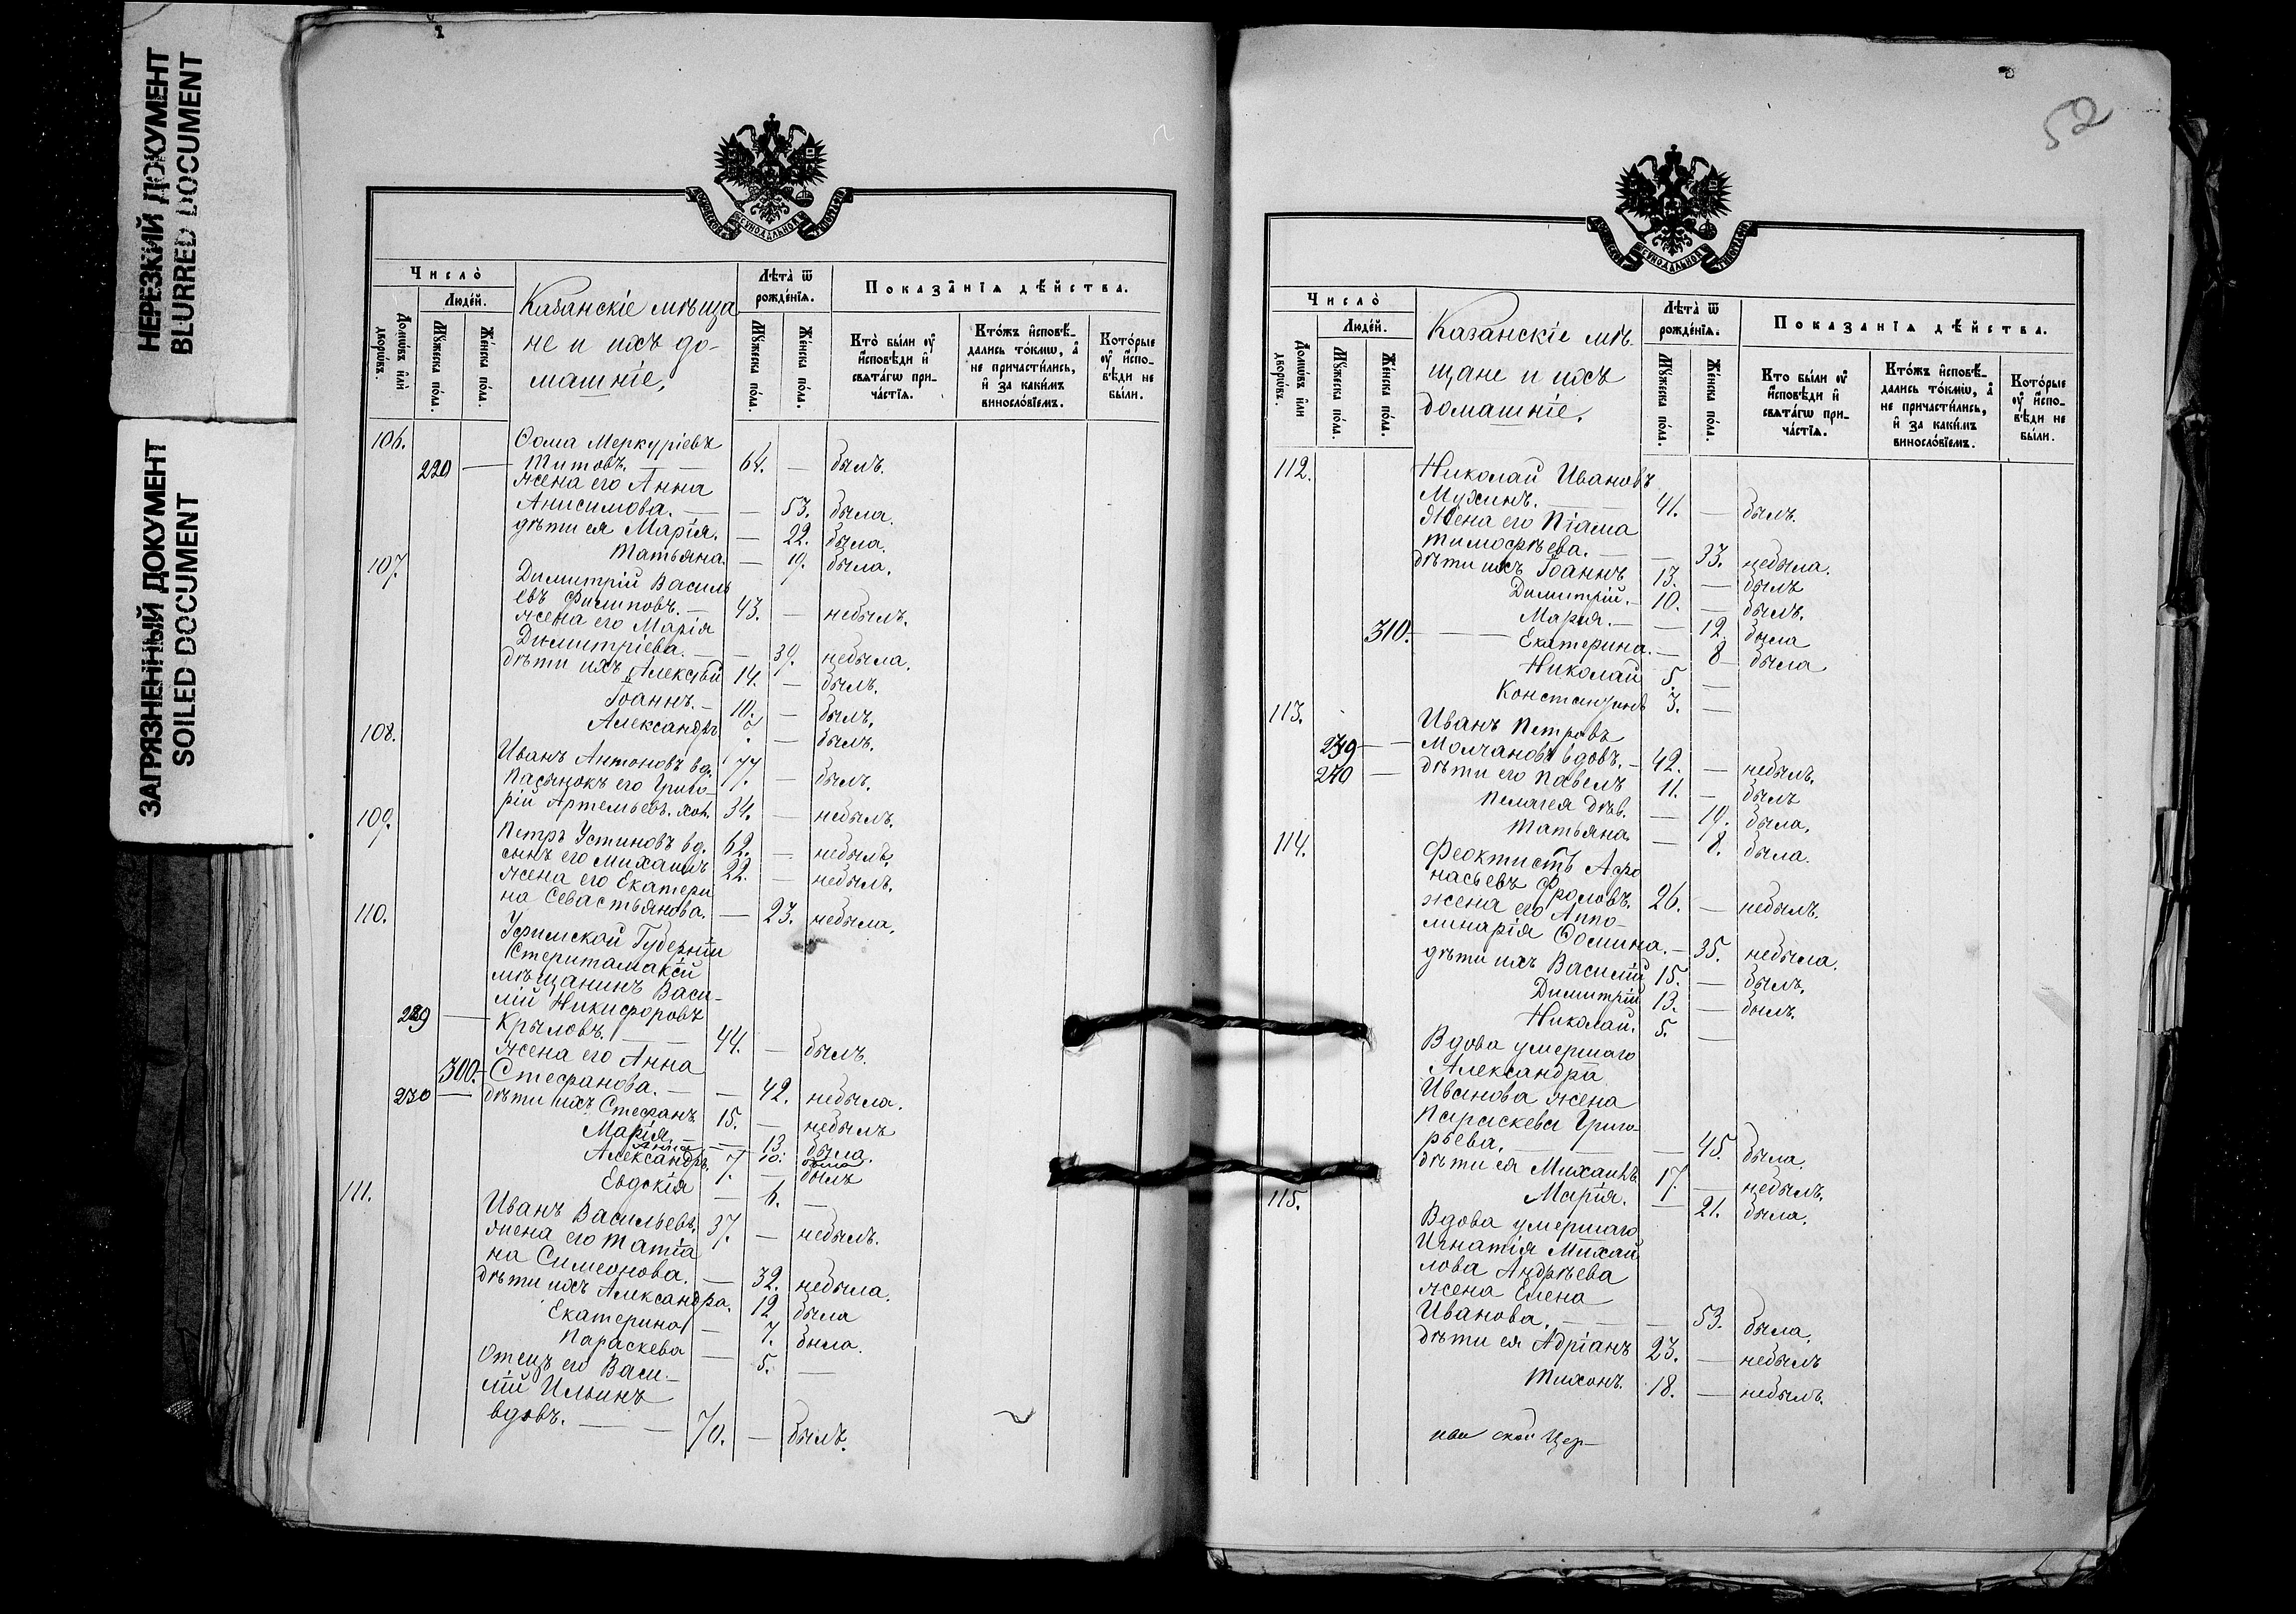 НЕРЕЗКИЙ ДОКУМЕНТ
BLURRED DOCUMENT
ЗАГРЯЗНЕННЫЙ ДОКУМЕНТ
SOILED DOCUMENT
СѴНОДАЛЬНОЙ
Число̀
Людей.
Домѡвъ или дворѡвъ.
Мꙋжеска пола.
Женска пола.
Казанскіе мѣща
не и ихъ до-
машніе,
Лѣта̀ ѿ рожденія.
Мꙋжеска пола.
Женска пола.
Показанія дѣйства.
Кто̀ были ᲂу҆ исповѣди и свѧтагѡ причастія.
Ктожъ исповѣдались токмѡ, а не причастились, и за какимъ винословіемъ.
Которые ᲂу҆ исповѣди не были.
106. Ѳома Меркуріевъ
220 — Титовъ. — — 64. — былъ.
жена его Анна
Анисимова. — — 53. была.
дѣти ея Марія. — 22. была.
Татьяна. — 19. была.
107. Димитрій Василь
евъ Филиповъ. — 43. — небылъ.
жена его Марія
Димитріева. — — 39. небыла.
дѣти ихъ Алексѣй 14. — былъ.
Іоаннъ. — 10. — былъ.
Александръ 7. — былъ.
108. Иванъ Антоновъ вд. 77. — былъ.
Пасынокъ его Григо-
рій Артемьевъ. хол. 34. — небылъ.
109. Петръ Устиновъ вд. 62. — небылъ.
сынъ его Михаилъ 22. — небылъ.
жена его Екатери
на Севастьянова. — 23. небыла.
110. Уфимской Губерніи
Стеритамакскій
мѣщанинъ Васи-
лій Никифоровъ
229 — Крыловъ. — 44. — былъ.
жена его Анна
300. Стефанова. — — 42. небыла.
230 — дѣти ихъ Стефанъ 15. — небылъ
Марія. — — 13 была.
Анна 10. была
Александръ. 7. — былъ
Евдокія — 6. —
111. Иванъ Васильевъ. 37. — небылъ.
жена его Татіа
на Симеонова. — 32. небыла.
дѣти ихъ Александра. 12 была
Екатерина — 7. была.
Параскева — 5. —
Отецъ его Васи-
лій Ильинъ
вдовъ. — — 70. — былъ.
52
СѴНОДАЛЬНОЙ
Число̀
Людей.
Домѡвъ или дворѡвъ.
Мꙋжеска пола.
Женска пола.
Казанскіе мѣ-
щане и ихъ
домашніе.
Лѣта̀ ѿ рожденія.
Мꙋжеска пола.
Женска пола.
Показанія дѣйства.
Кто были ᲂу҆ исповѣди и свѧтагѡ причастія.
Ктожъ исповѣдались токмѡ, а не причастились, и за какимъ винословіемъ.
Которые ᲂу҆ исповѣди не были.
112. Николай Ивановъ
Мухинъ. — 41. — былъ.
Жена его Піама
Тимофѣева. — — 33. небыла.
дѣти ихъ Іоаннъ 13. — былъ
Димитрій. — 10. — былъ.
Марія. — — 12 была
310. — — Екатерина. — 8 — была
Николай 5. —
Константинъ 3. —
113. Иванъ Петровъ
239 — — Молчановъ вдовъ. — 42. — небылъ.
240 — дѣти его Павелъ 11. — былъ
Пелагея дѣв. — 19. была.
Татьяна. — 8. была.
114. Феоктистъ Афо
насьевъ Фроловъ. 26. — небылъ.
жена его Аппо-
линарія Ѳомина. — 35. небыла.
дѣти ихъ Василій 15. — былъ.
Димитрій 13. — былъ.
Николай. 5. —
Вдова умершаго
Александра
Иванова жена
Параскева Григо-
рьева. — — 45. была.
дѣти ея Михаилъ 17. — небылъ.
Марія. — 21. была.
115. Вдова умершаго
Игнатія Михай
лова Андрѣева
жена Елена
Иванова. — — 53. была.
дѣти ея Адріанъ 23. — небылъ
Тихонъ. 18. — небылъ.